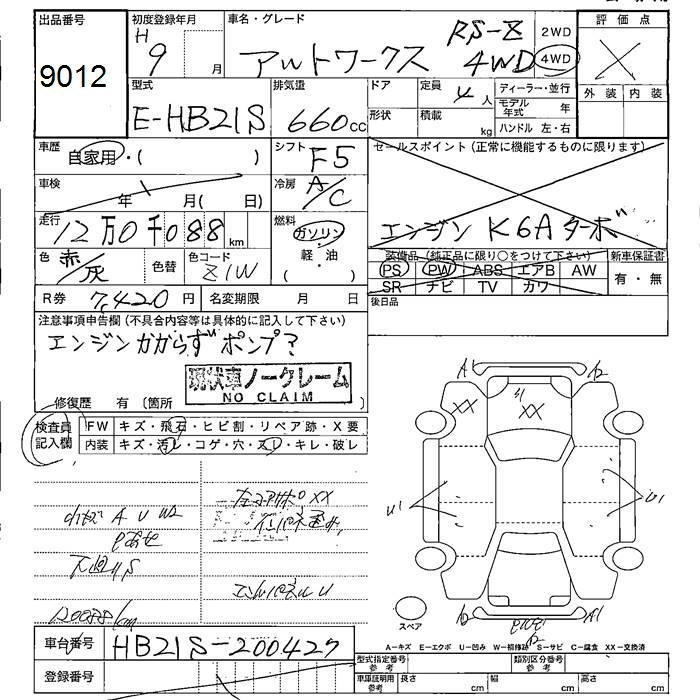 出品番号 初度登録年月 車名・グレード 評価点
9012 H 9 月 アルトワークス RS-Z 4WD 2WD 4WD X
型式 排気量 ドア 定員 ディーラー・並行 外装 内装
E-HB21S 660cc 4人 モデル年式 年
形状 積載 kg ハンドル 左・右
車歴 自家用・( ) シフト F5 セールスポイント(正常に機能するものに限ります)
車検 年 月( 日) 冷房 A/C
走行 12万0千088km 燃料 ガソリン 軽・油 エンジン K6A ターボ
色 赤/灰 色替 色コード Z1W 装備品(純正品に限り○をつけて下さい) 新車保証書
PS PW ABS エアB AW 有・無
SR ナビ TV カワ
R券 7,420円 名変期限 月 日 後日品
注意事項申告欄(不具合内容等は具体的に記入して下さい)
エンジンかからず ポンプ?
現状車ノークレーム
NO CLAIM
修復歴 有(箇所 )
検査員記入欄 FW キズ・飛石・ヒビ割・リペア跡・X要
内装 キズ・汚レ・コゲ・穴・スレ・キレ・破レ
A1 A2
XX U1 XX
U1 U1
左コアサポXX
A U W2
下廻りS
120088km
スペア A1
A-キズ E-エクボ U-凹み W-補修跡 S-サビ C-腐食 XX-交換済
車台番号 HB21S-200427 型式指定番号 参考 類別区分番号 参考
登録番号 車庫証明用 参考 長さ cm 幅 cm 高さ cm